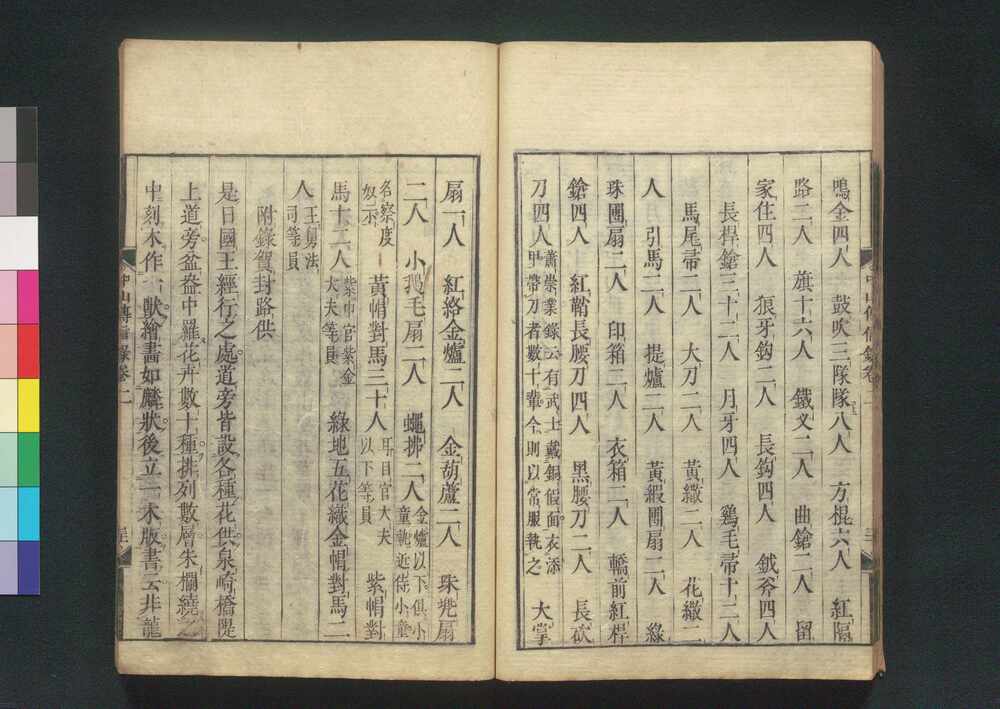 鳴金四人　鼓吹三隊隊八人　方棍六人　紅隔
路二人　旗十六人　鐵叉二人　曲鎗二人　畱
家住四人　狼牙鈎二人　長鈎四人　鉞斧四人
長桿鎗三十二人　月牙四人　鷄毛帚十二人
馬尾帚二人　大刀二人　黃繖二人　花繖二
人　引馬二人　提爐二人　黃緞團扇二人　綠
珠團扇二人　印箱二人　衣箱二人　轎前紅桿
鎗四人　紅鞘長腰刀四人　黑腰刀二人　長砍
刀四人　蕭崇業錄云有武士戴銅假面衣添
甲帶刀者數十輩今則以常服執之　大掌
扇一人　紅絡金爐二人　金葫蘆二人　珠兜扇
二人　小鵝毛扇二人　蠅拂二人　金爐以下俱小
童執近侍小童
名察度
奴示　黃帽對馬三十人　耳目官大夫
以下等員　紫帽對
馬十二人　紫巾官紫金
大夫等員　綠地五花織金帽對馬二
人　王舅法
司等員
附錄賀封路供
是日國王經行之處道旁皆設各種花供泉崎橋隄
上道旁盆盎中羅花卉數十種排列數層朱欄繞之
中刻木作六獸繪畫如麟狀後立一木版書云非龍
中山傳信錄卷二